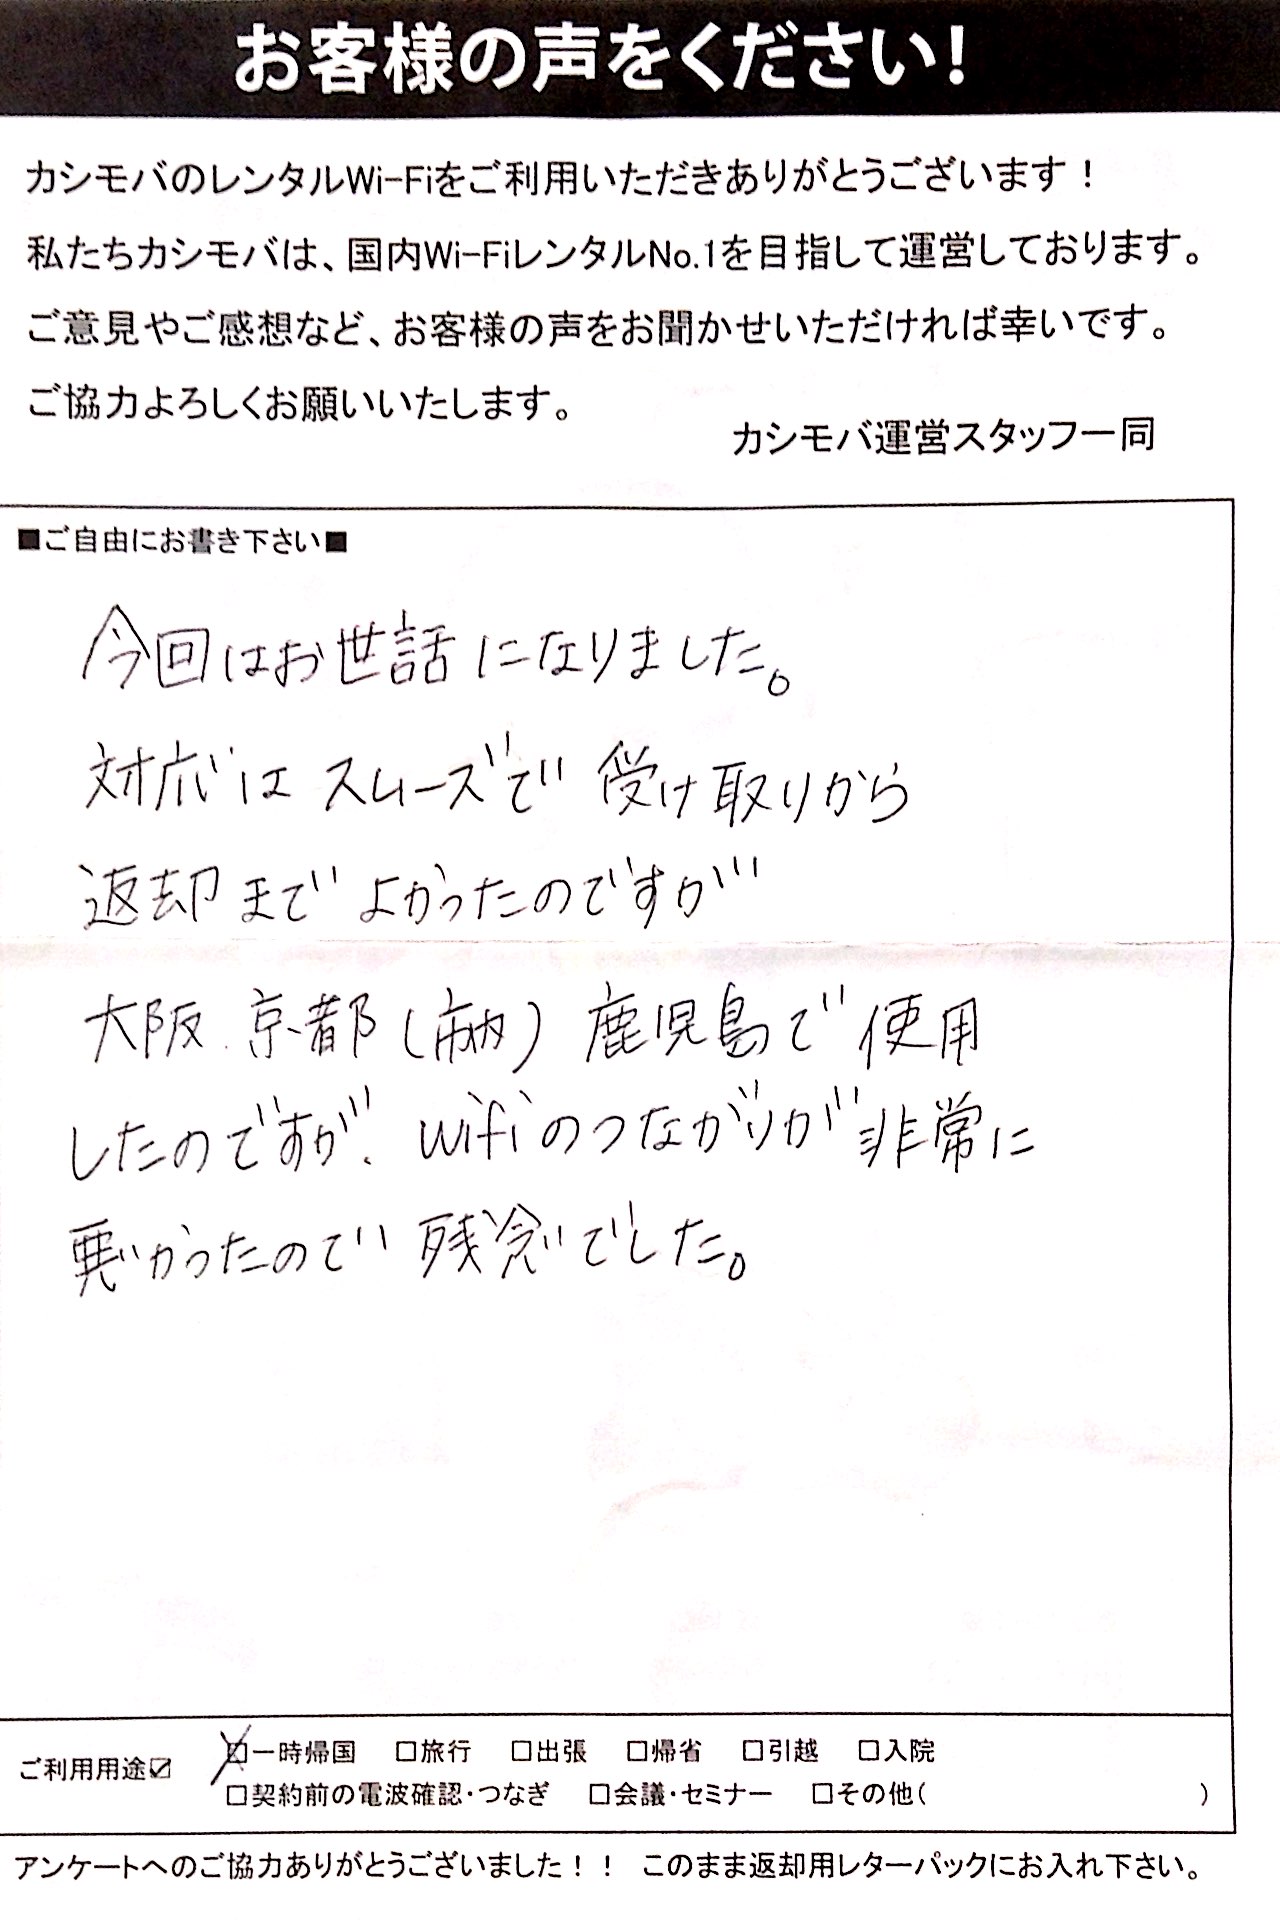 お客様の声をください!
カシモバのレンタルWi-Fiをご利用いただきありがとうございます！
私たちカシモバは、国内Wi-FiレンタルNo.1を目指して運営しております。
ご意見やご感想など、お客様の声をお聞かせいただければ幸いです。
ご協力よろしくお願いいたします。
カシモバ運営スタッフ一同
■ご自由にお書き下さい■
今回はお世話になりました。
対応はスムーズで受け取りから
返却までよかったのですが
大阪.京都(市内)鹿児島で使用
したのですが、wifiのつながりが非常に
悪いかったので残念いでした。
ご利用用途☑ □一時帰国 □旅行 □出張 □帰省 □引越 □入院
□契約前の電波確認･つなぎ □会議･セミナー □その他( )
アンケートへのご協力ありがとうございました！！ このまま返却用レターパックにお入れ下さい。